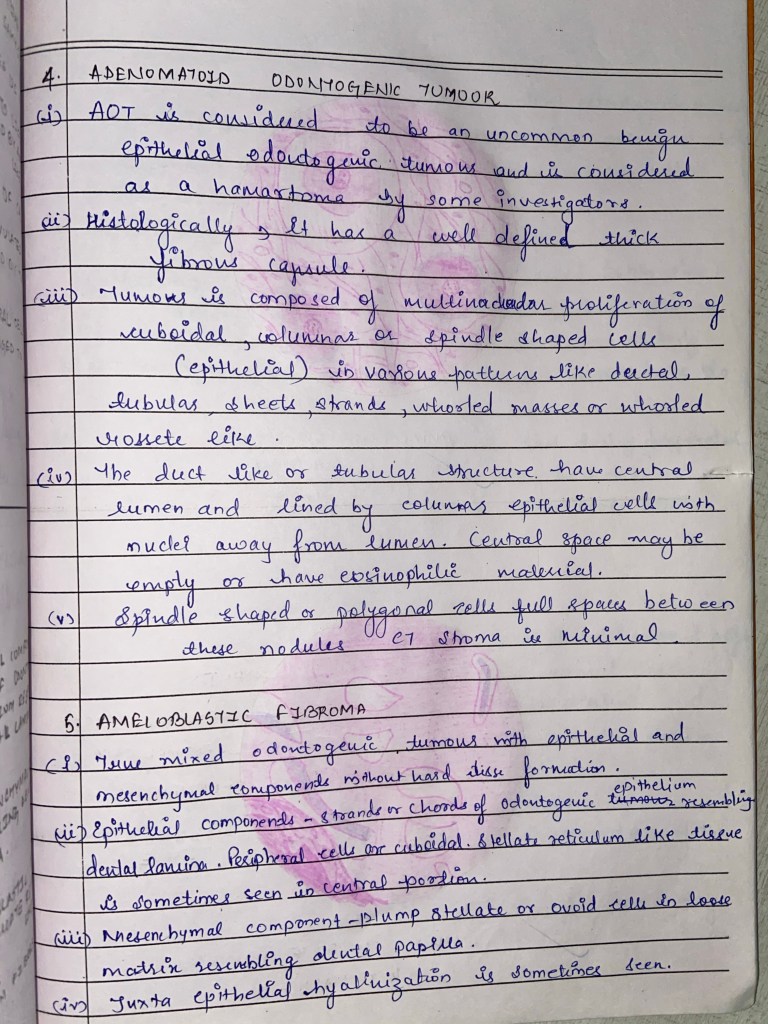 4. ADENOMATOID ODONTOGENIC TUMOUR
(i) AOT is considered to be an uncommon benign
epithelial odontogenic tumour and is considered
as a hamartoma by some investigators.
(ii) Histologically, It has a well defined thick
fibrous capsule.
(iii) Tumour is composed of multinodular proliferation of
cuboidal, columnar or spindle shaped cells
(epithelial) in various patterns like ductal,
tubular, sheets, strands, whorled masses or whorled
rossete like.
(iv) The duct like or tubular structure have central
lumen and lined by columnar epithelial cells with
nuclei away from lumen. Central space may be
empty or have eosinophilic material.
(v) Spindle shaped or polygonal cells full spaces between
these nodules CT stroma is minimal.
5. AMELOBLASTIC FIBROMA
(i) True mixed odontogenic tumour with epithelial and
mesenchymal components without hard tisse formation.
(ii) Epithelial components - strands or chords of odontogenic tumour epithelium resembling
dental lamina. Peripheral cells are cuboidal. Stellate reticulum like tissue
is sometimes seen in central portion.
(iii) Mesenchymal component - plump stellate or ovoid cells in loose
matrix resembling dental papilla.
(iv) Juxta epithelial hyalinization is sometimes seen.